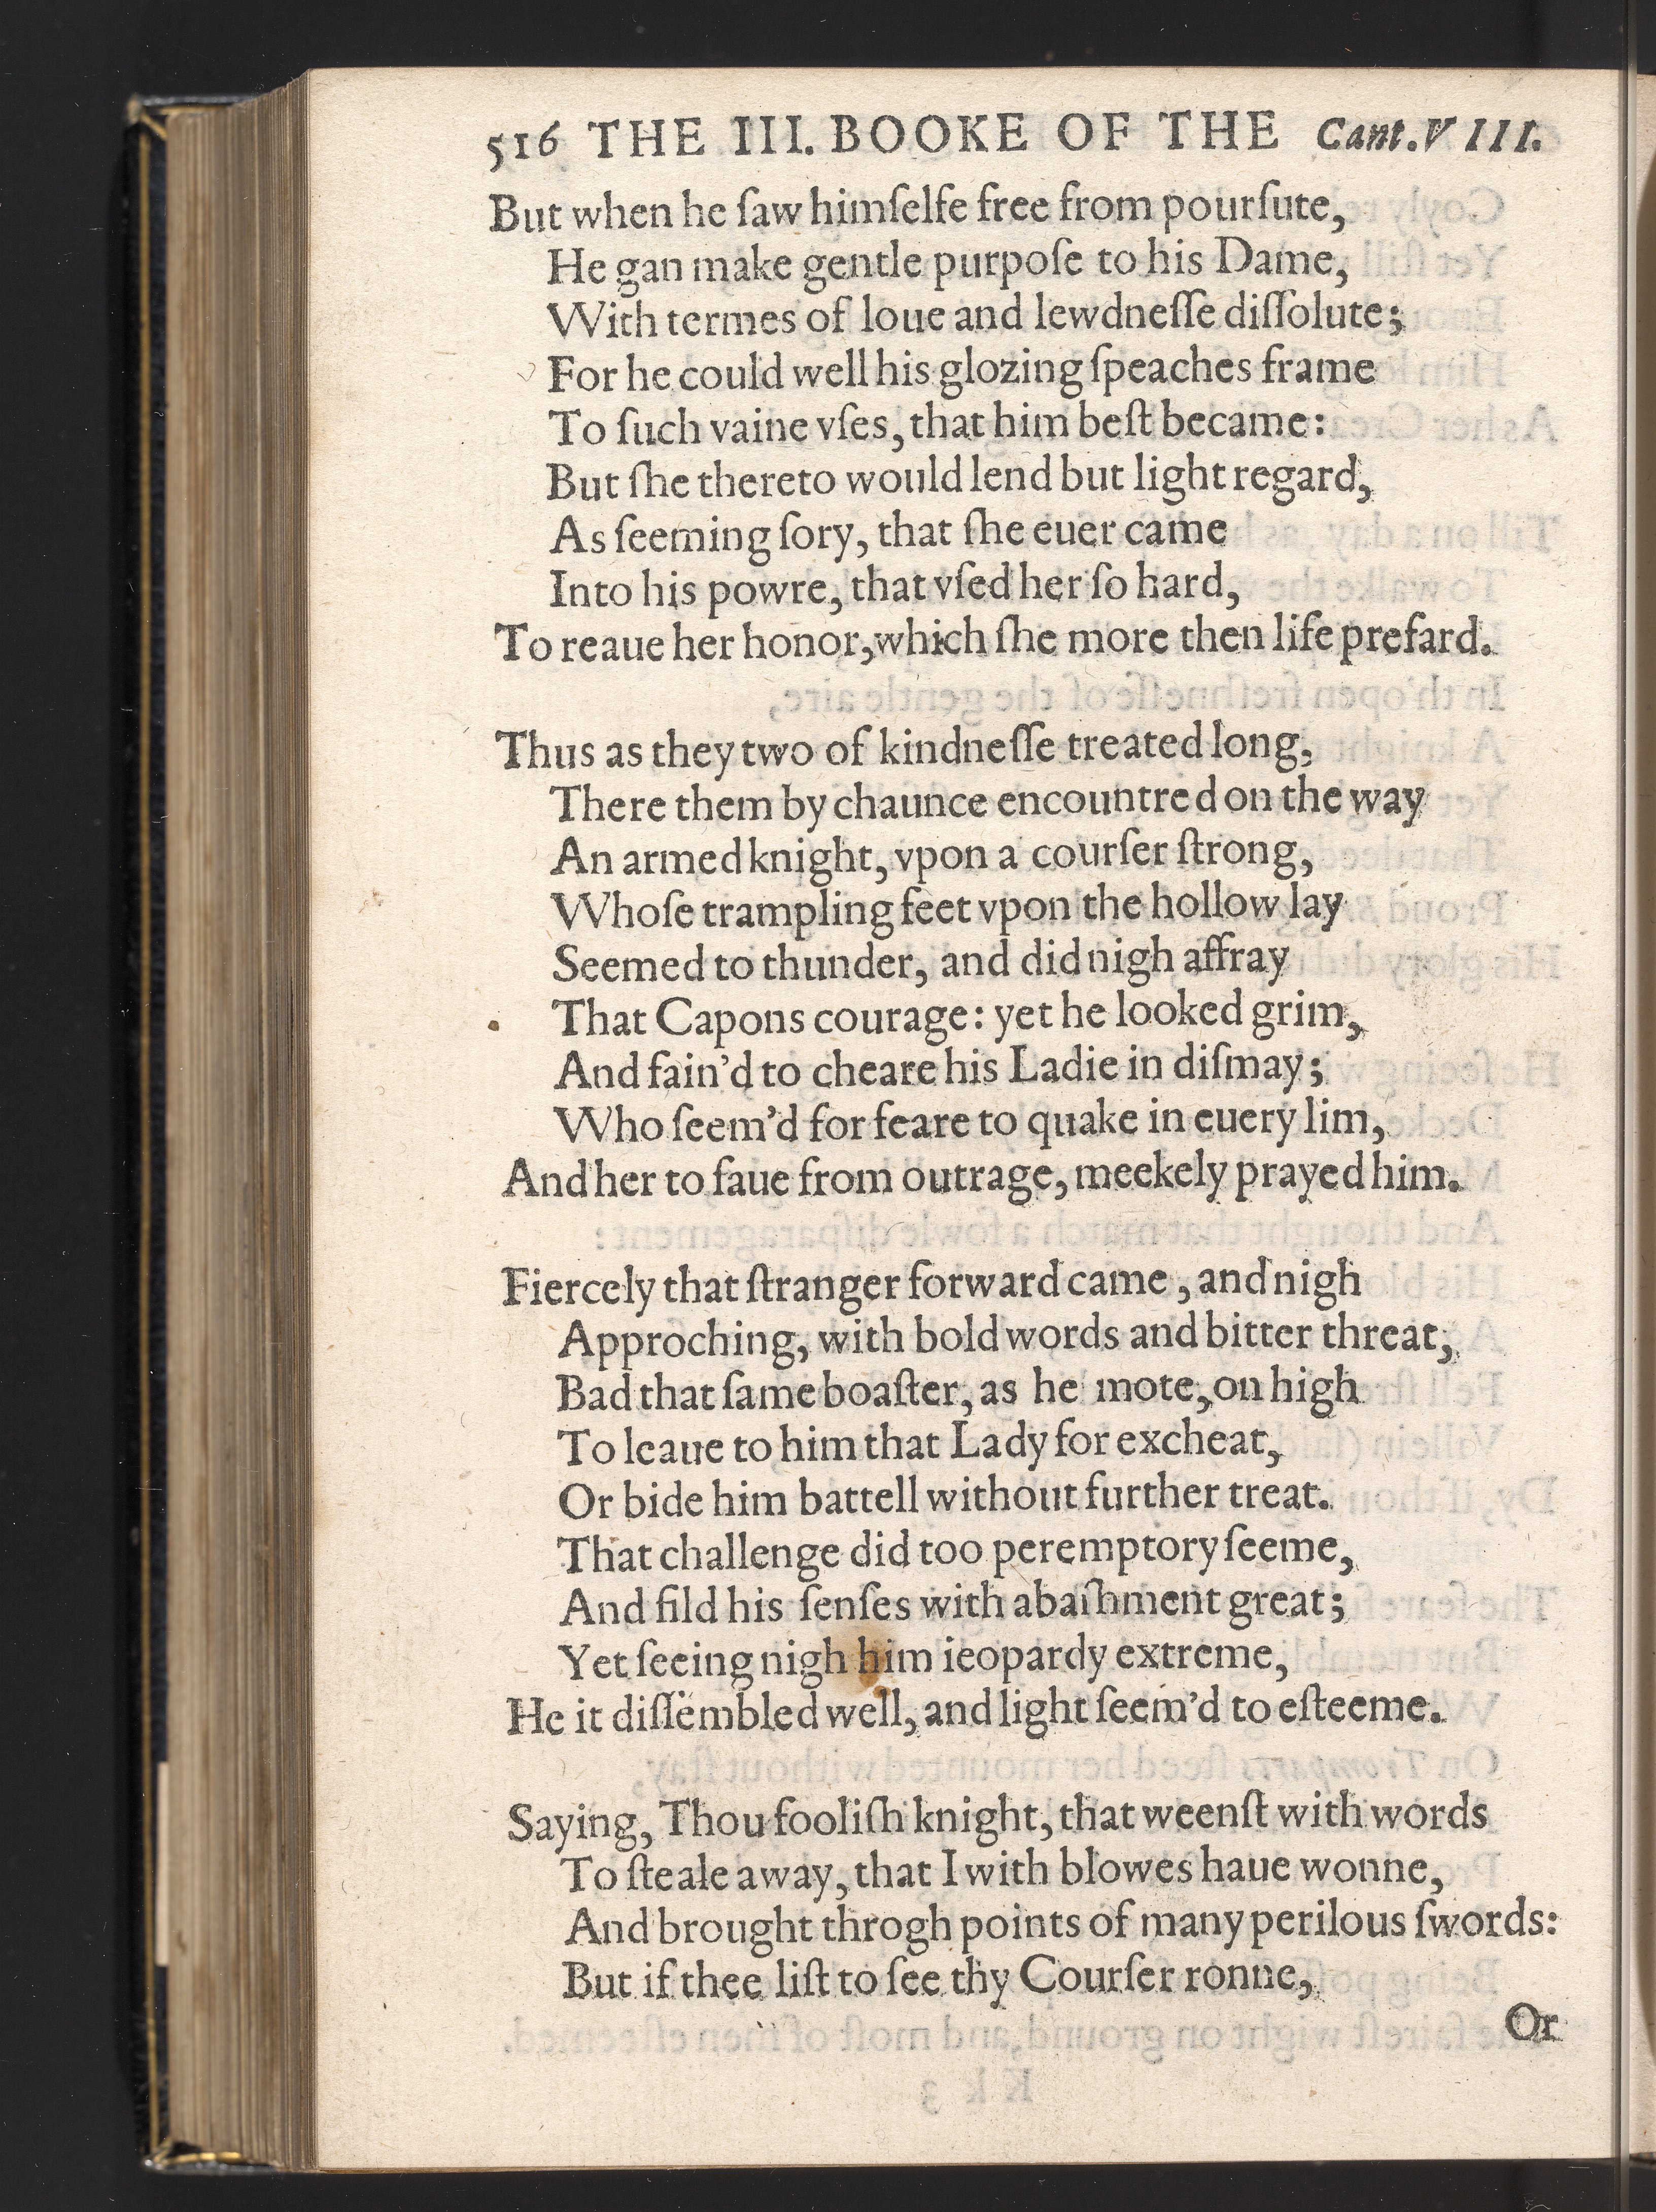 516 THE III. BOOKE OF THE Cant. VIII.
But when he ſaw himſelfe free from pourſute,
He gan make gentle purpoſe to his Dame,
With termes of loue and lewdneſſe diſſolute;
For he could well his glozing ſpeaches frame
To ſuch vaine vſes, that him beſt became:
But ſhe thereto would lend but light regard,
As ſeeming ſory, that ſhe euer came
Into his powre, that vſed her ſo hard,
To reaue her honor, which ſhe more then life prefard.
Thus as they two of kindneſſe treated long,
There them by chaunce encountred on the way
An armed knight, vpon a courſer ſtrong,
Whoſe trampling feet vpon the hollow lay
Seemed to thunder, and did nigh affray
That Capons courage: yet he looked grim,
And fain'd to cheare his Ladie in diſmay;
Who ſeem'd for feare to quake in euery lim,
And her to ſaue from outrage, meekely prayed him.
Fiercely that ſtranger forward came, and nigh
Approching, with bold words and bitter threat,
Bad that ſame boaſter, as he mote, on high
To leaue to him that Lady for excheat,
Or bide him battell without further treat.
That challenge did too peremptory ſeeme,
And fild his ſenſes with abaſhment great;
Yet ſeeing nigh him ieopardy extreme,
He it diſſembled well, and light ſeem'd to eſteeme.
Saying, Thou fooliſh knight, that weenſt with words
To ſteale away, that I with blowes haue wonne,
And brought throgh points of many perilous ſwords:
But if thee liſt to ſee thy Courſer ronne,
Or